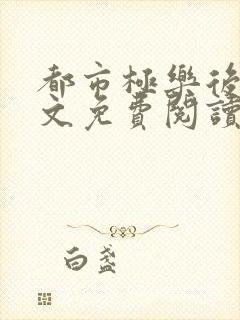 都市極樂後
文免費閱讀
白盞